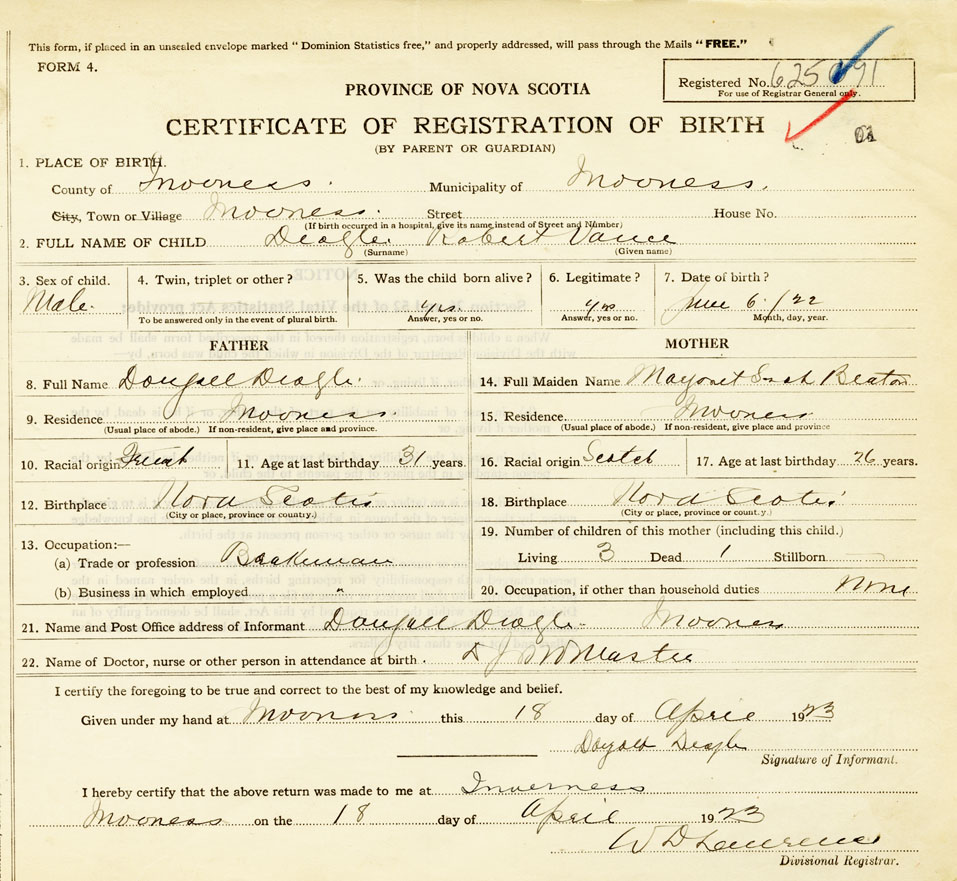 This form, if placed in an unsealed envelope marked "Dominion Statistics free," and properly addressed, will pass through the Mails "FREE."
FORM 4.
Registered No. 625 91
For use of Registrar General only.
PROVINCE OF NOVA SCOTIA
CERTIFICATE OF REGISTRATION OF BIRTH
(BY PARENT OR GUARDIAN)
1. PLACE OF BIRTH.
County of Inverness. Municipality of Inverness.
City, Town or Village Inverness. Street House No.
(If birth occurred in a hospital, give its name instead of Street and Number)
2. FULL NAME OF CHILD Deagle Robert Vance
(Surname) (Given name)
3. Sex of child. 4. Twin, triplet or other? 5. Was the child born alive? 6. Legitimate? 7. Date of birth?
Male. yes. yes June 6/22
To be answered only in the event of plural birth. Answer, yes or no. Answer, yes or no. Month, day, year.
FATHER MOTHER
8. Full Name Dougall Deagle. 14. Full Maiden Name Margaret Beaton
9. Residence Inverness. 15. Residence. Inverness
(Usual place of abode.) If non-resident, give place and province. (Usual place of abode.) If non-resident, give place and province
10. Racial origin French 11. Age at last birthday 31 years. 16. Racial origin Scotch 17. Age at last birthday 26 years.
12. Birthplace Nova Scotia 18. Birthplace Nova Scotia
(City or place, province or country.) (City or place, province or country.)
19. Number of children of this mother (including this child.)
13. Occupation:—
(a) Trade or profession Brakeman Living 3 Dead 1 Stillborn —
(b) Business in which employed " 20. Occupation, if other than household duties None
21. Name and Post Office address of Informant Dougall Deagle. Inverness
22. Name of Doctor, nurse or other person in attendance at birth.
I certify the foregoing to be true and correct to the best of my knowledge and belief.
Given under my hand at Inverness. this 18 day of April 1923
Deagle
Signature of Informant.
I hereby certify that the above return was made to me at Inverness
Inverness on the 18 day of April 1923
W D Lawrence
Divisional Registrar.